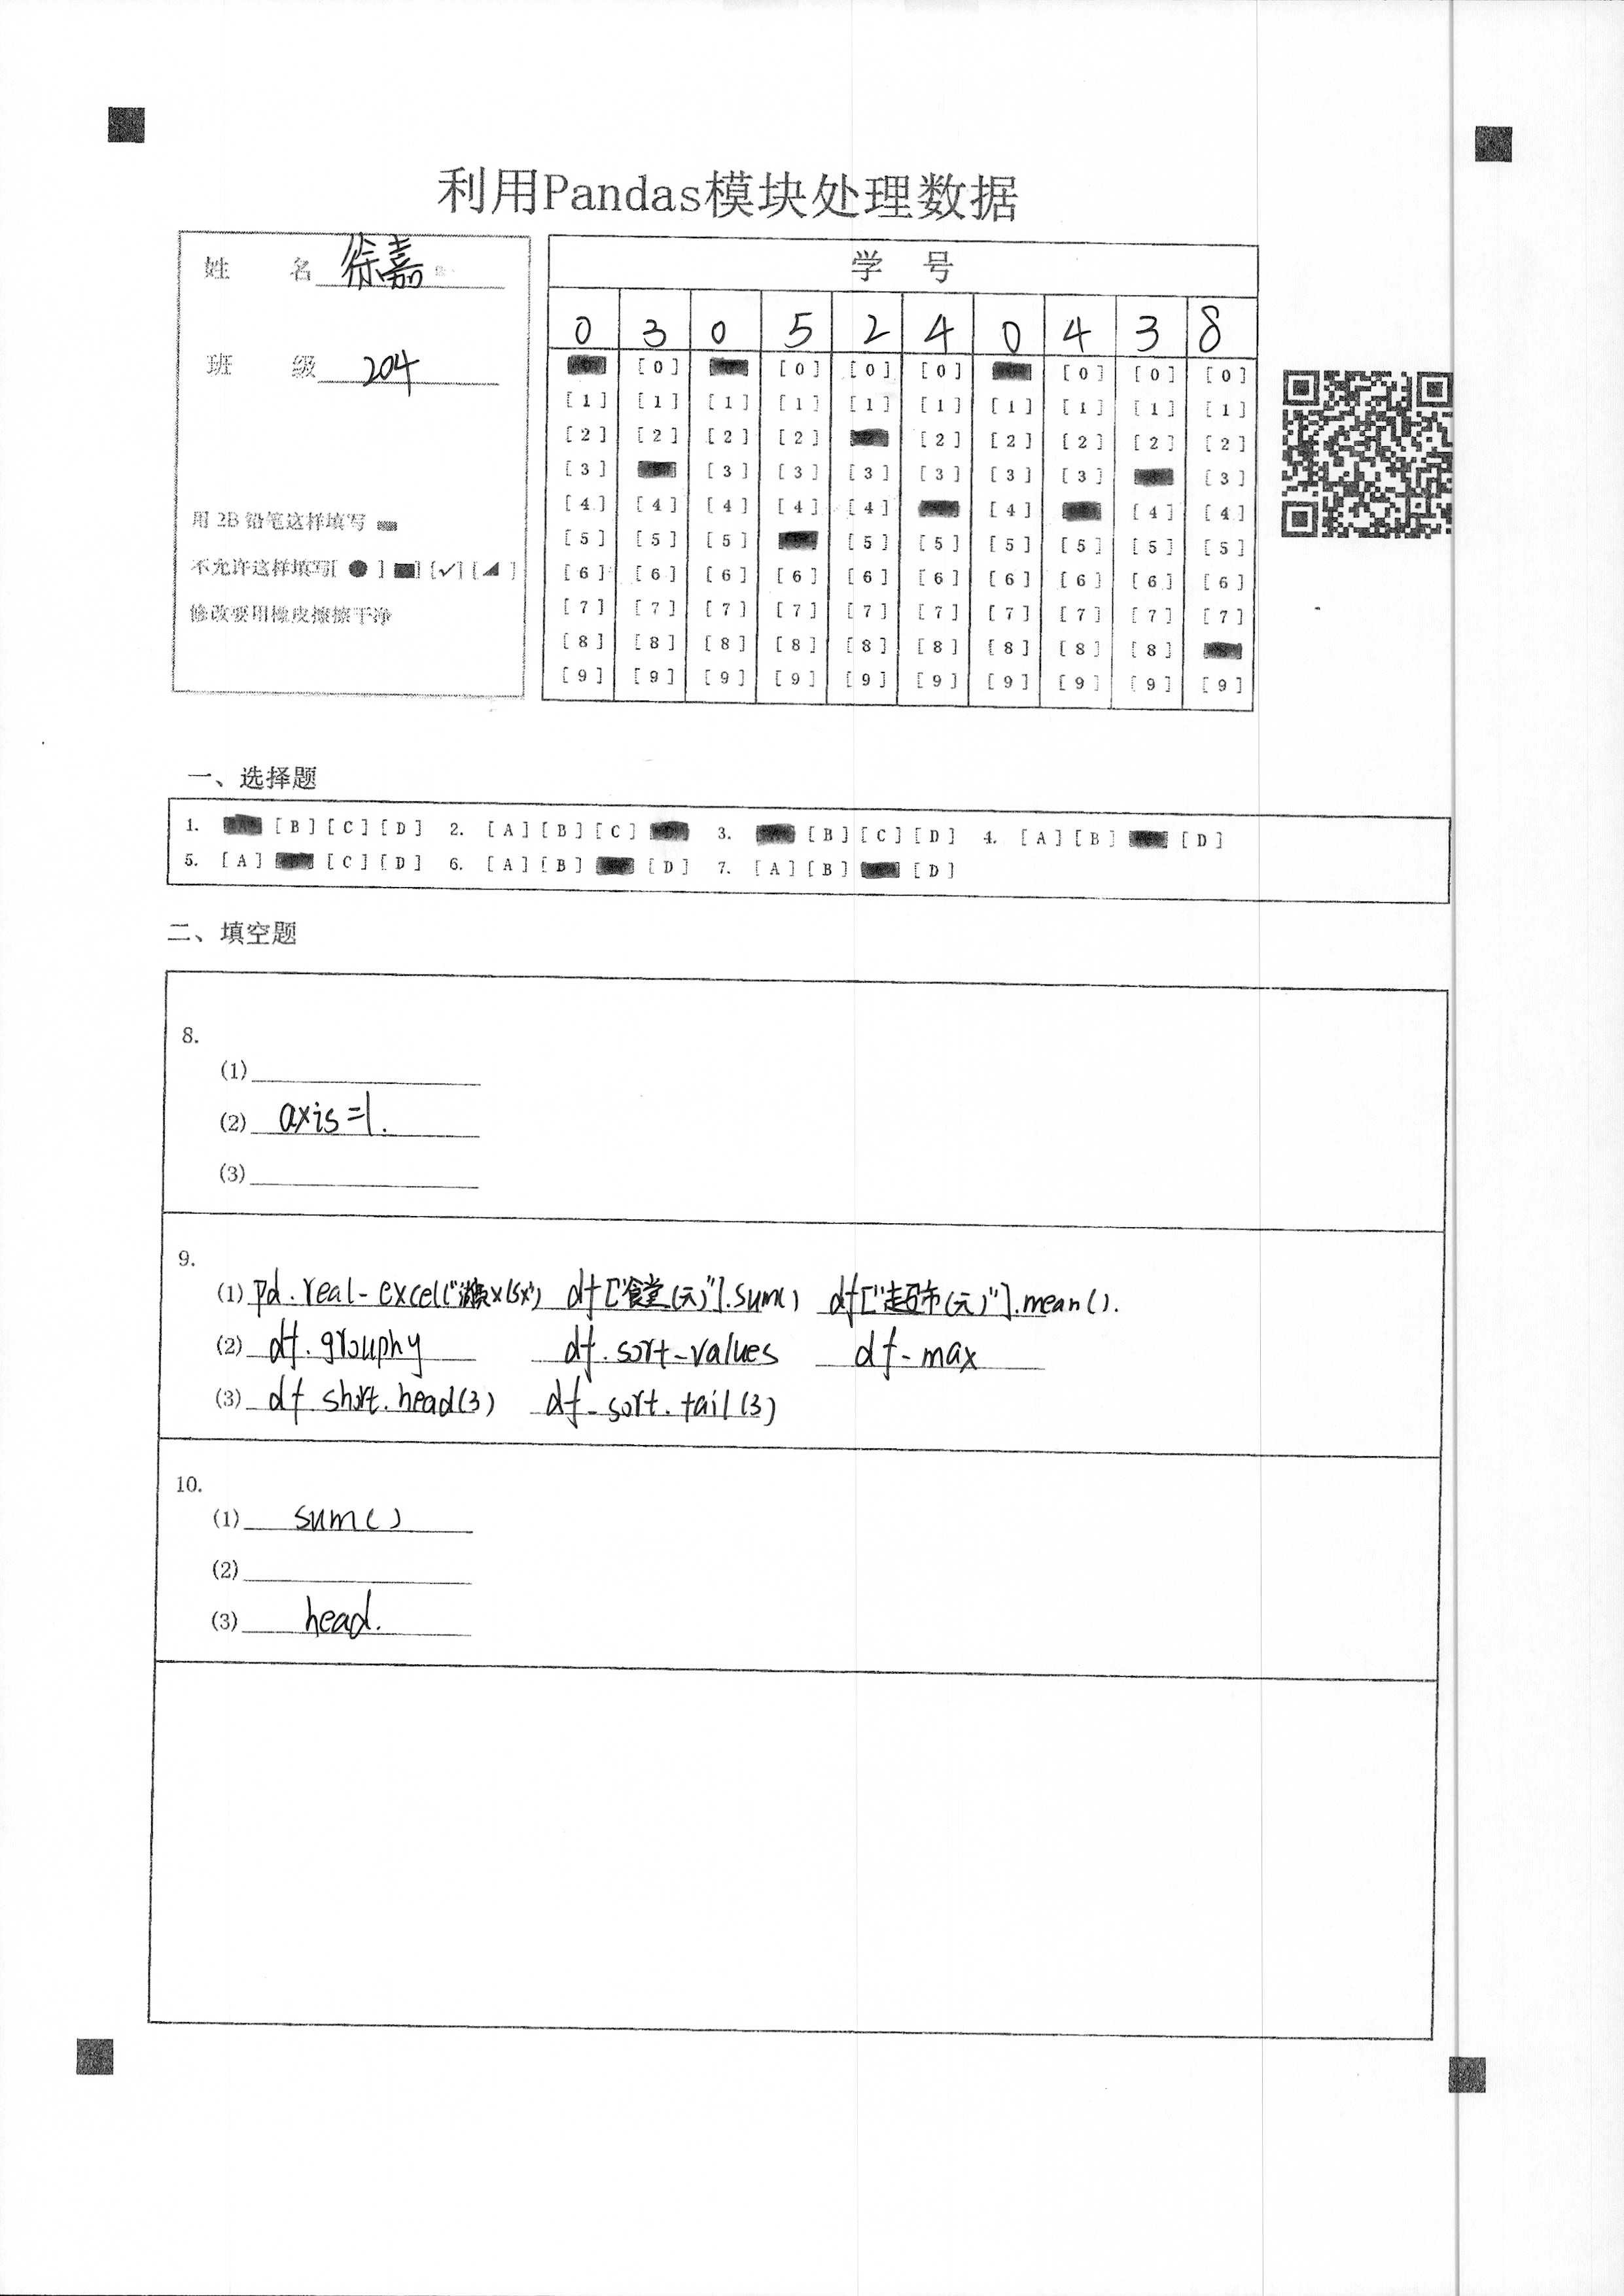 利用Pandas模块处理数据
姓 名 徐嘉
班 级 204
用 2B 铅笔这样填写
不允许这样填写[ ● ] [■] [✓] [◢ ]
修改要用橡皮擦擦干净
学 号
0 3 0 5 2 4 0 4 3 8
[0] [0] [0] [0] [0] [0] [0]
[1] [1] [1] [1] [1] [1] [1] [1] [1] [1]
[2] [2] [2] [2] [2] [2] [2] [2] [2]
[3] [3] [3] [3] [3] [3] [3] [3]
[4] [4] [4] [4] [4] [4] [4] [4]
[5] [5] [5] [5] [5] [5] [5] [5] [5]
[6] [6] [6] [6] [6] [6] [6] [6] [6] [6]
[7] [7] [7] [7] [7] [7] [7] [7] [7] [7]
[8] [8] [8] [8] [8] [8] [8] [8] [8]
[9] [9] [9] [9] [9] [9] [9] [9] [9] [9]
一、选择题
1. [B] [C] [D] 2. [A] [B] [C] 3. [B] [C] [D] 4. [A] [B] [D]
5. [A] [C] [D] 6. [A] [B] [D] 7. [A] [B] [D]
二、填空题
8.
(1)
(2) axis=1.
(3)
9.
(1) pd.real-excel("xlsx") df["食堂(元)"].sum() df["超市(元)"].mean().
(2) df.grouphy df.sort-values df-max
(3) df short.head(3) df-sort.tail(3)
10.
(1) sum()
(2)
(3) head.